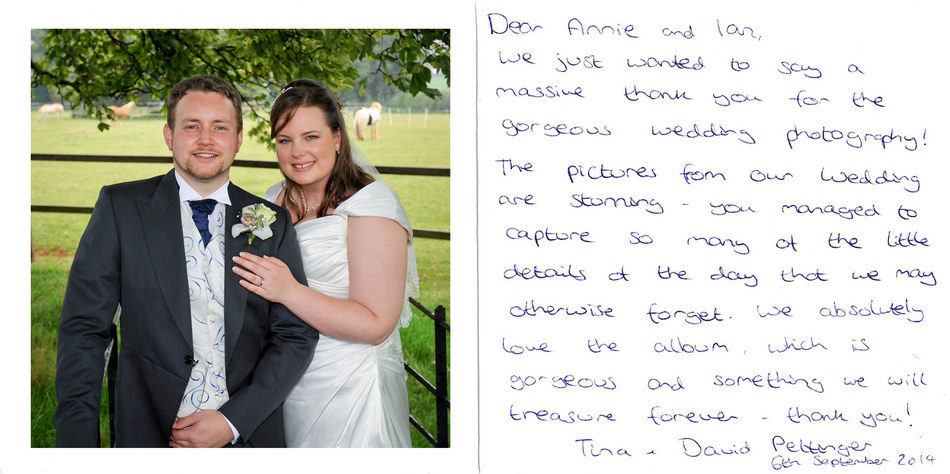 Dear Annie and Ian,
We just wanted to say a
massive thank you for the
gorgeous wedding photography!
The pictures from our wedding
are stunning - you managed to
capture so many of the little
details of the day that we may
otherwise forget. We absolutely
love the album, which is
gorgeous and something we will
treasure forever - thank you!
Tina + David Pettinger
6th September 2014